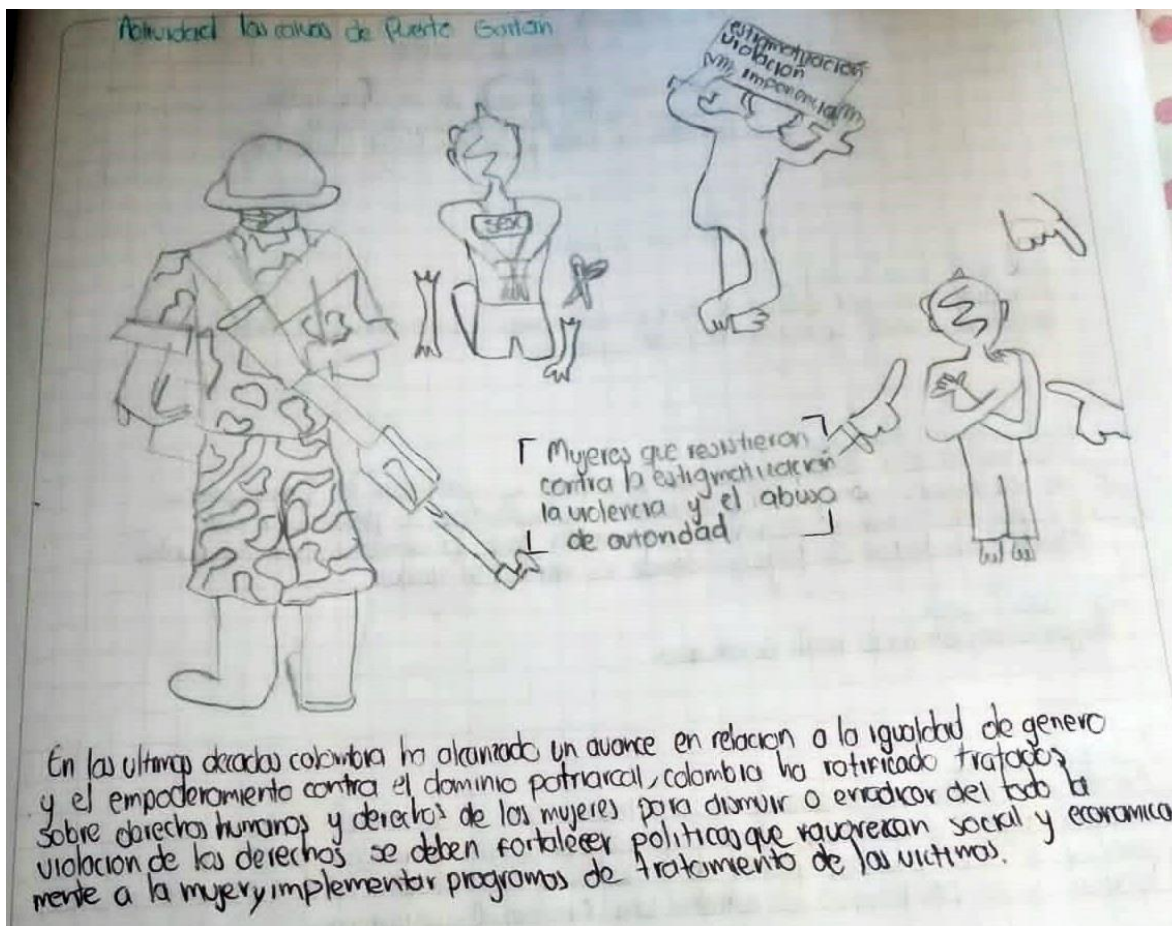 Actividad las calvas de Puerto Gaitan
estigmatización
violación
imponencia
sexo
Mujeres que resistieron
contra la estigmatización
la violencia y el abuso
de autoridad
En las ultimas decadas colombia ha alcanzado un avance en relacion a la igualdad de genero
y el empoderamiento contra el dominio patriarcal, colombia ha ratificado tratados
sobre derechos humanos y derechos de las mujeres para dismuir o erradicar del todo la
violacion de los derechos se deben fortalecer politicas que social y economica
mente a la mujer y implementar programas de tratamiento de las victimas.